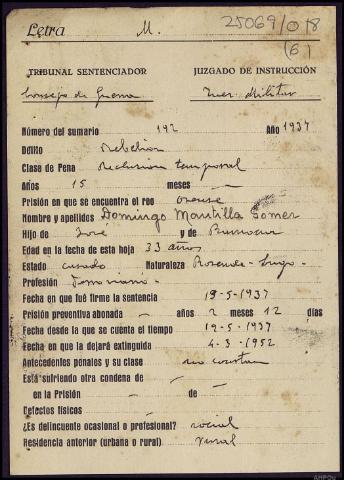 Letra M. 25069/018
(6)
TRIBUNAL SENTENCIADOR JUZGADO DE INSTRUCCIÓN
Consejo de Guerra Juez Militar
Número del sumario 192 Año 1937
Delito Rebelión
Clase de Pena Reclusión temporal
Años 15 meses —
Prisión en que se encuentra el reo Orense
Nombre y apellidos Domingo Mantilla Gómez
Hijo de José y de
Edad en la fecha de esta hoja 33 años
Estado casado Naturaleza - Lugo -
Profesión
Fecha en que fué firme la sentencia 19-5-1937
Prisión preventiva abonada — años 2 meses 12 días
Fecha desde la que se cuenta el tiempo 19-5-1937
Fecha en que la dejará extinguida 4-3-1952
Antecedentes penales y su clase no constan
Está sufriendo otra condena de —
en la Prisión — de —
Defectos físicos —
¿Es delincuente ocasional o profesional? social
Residencia anterior (urbana o rural) rural